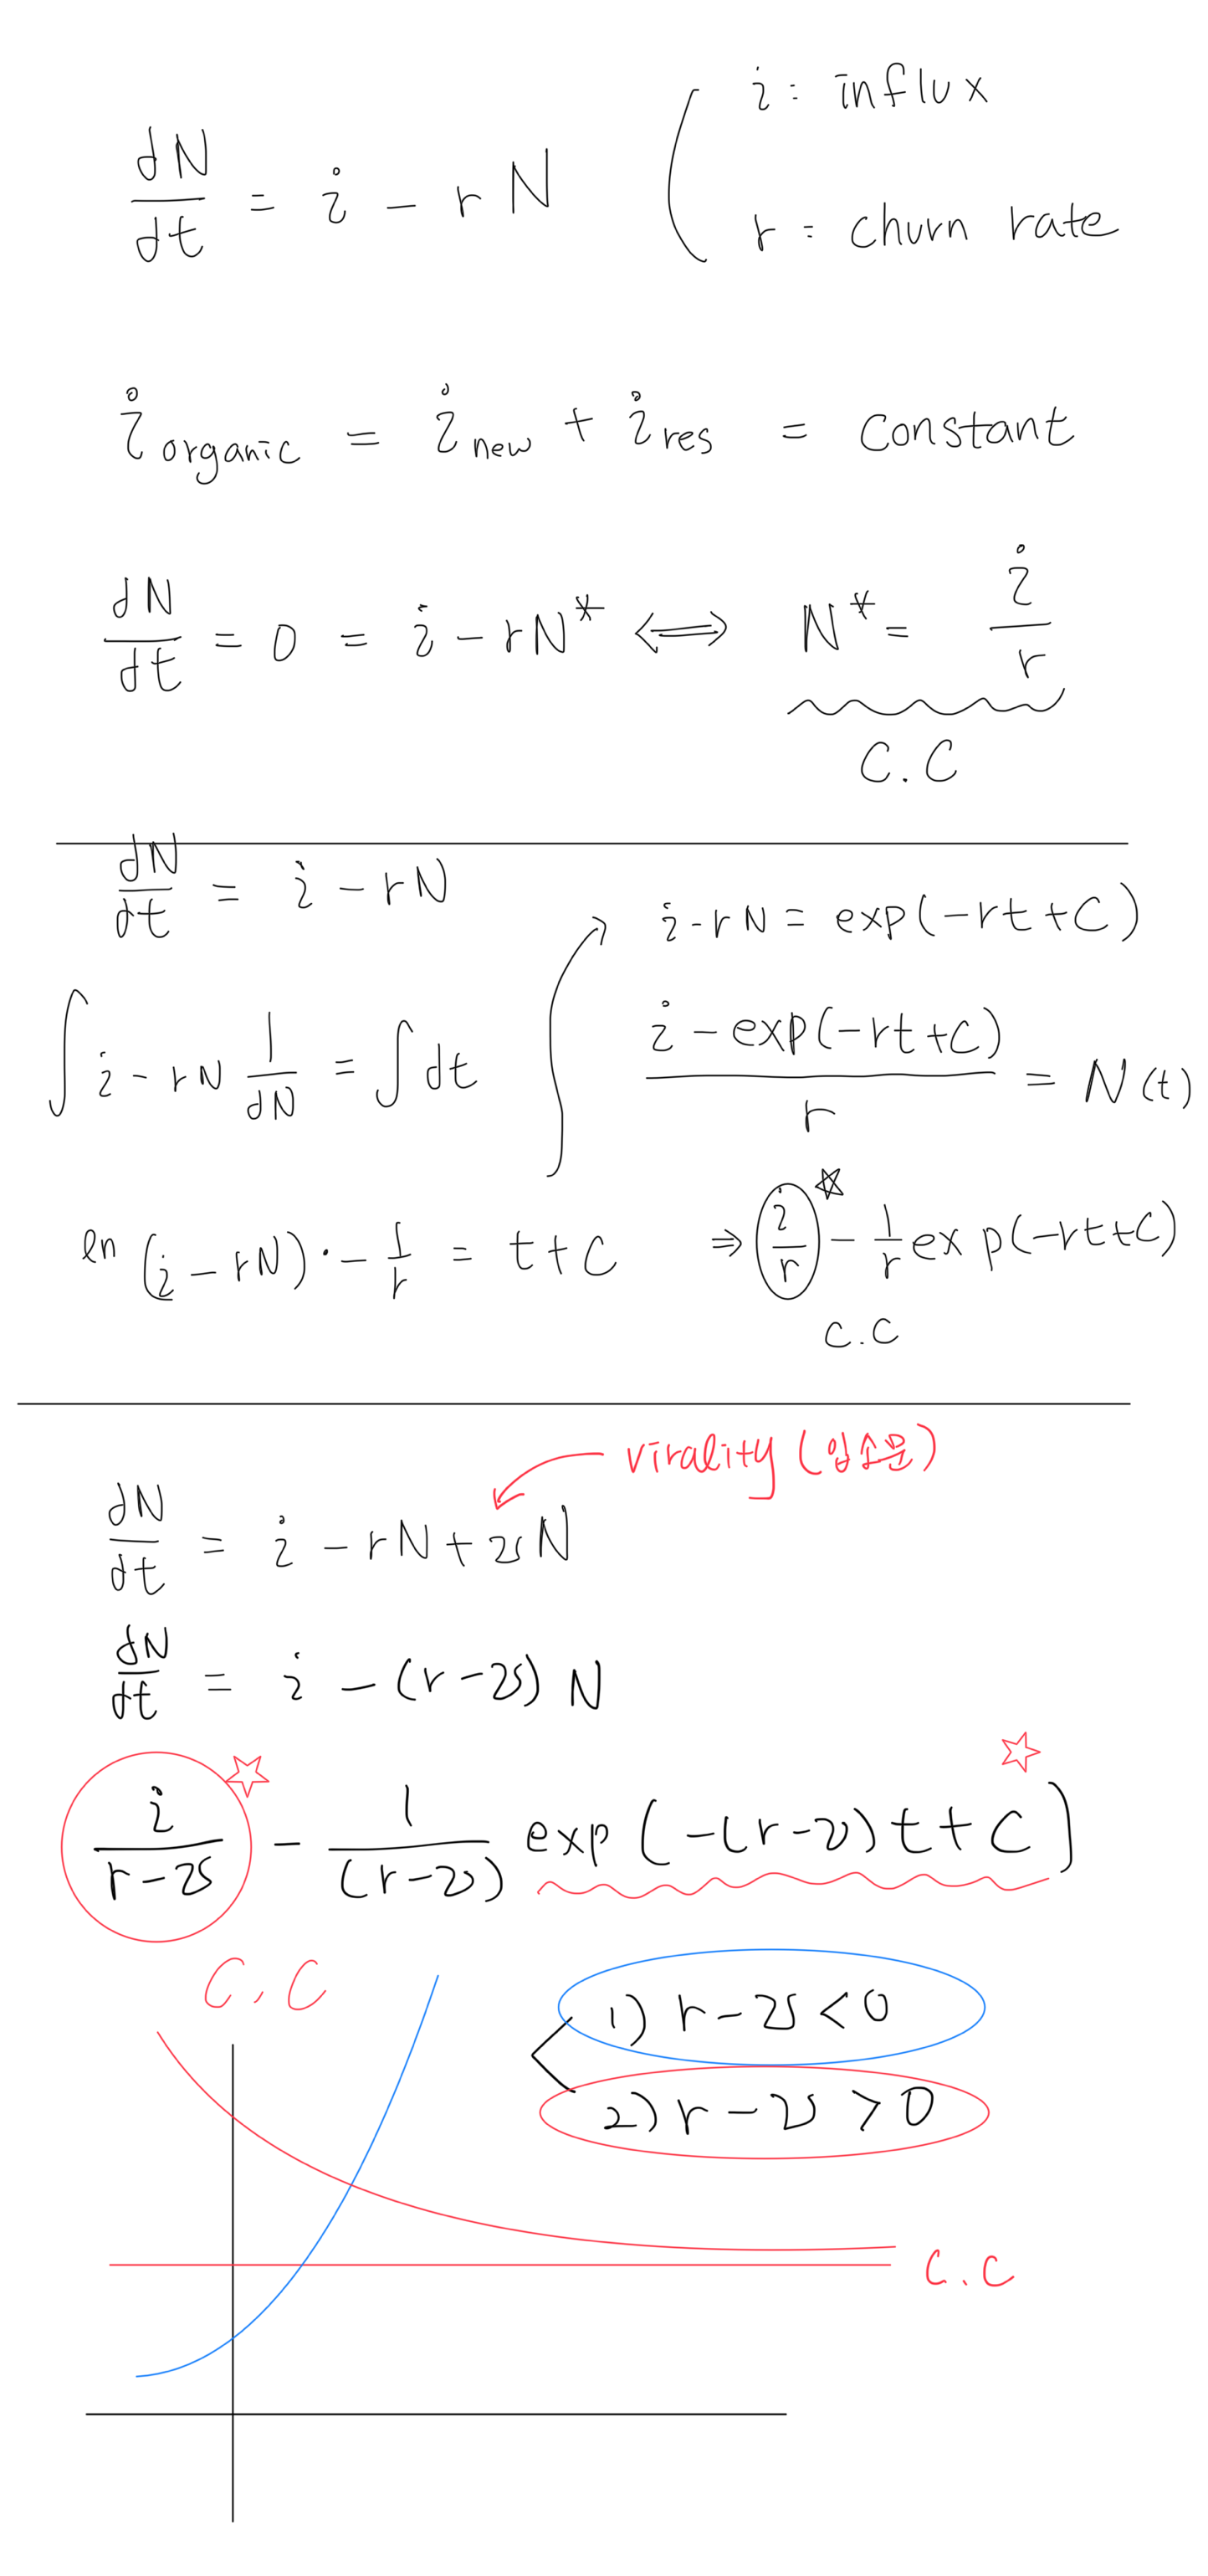 dN/dt = i - rN ( i: influx
r = churn rate
i organic = i new + i res = constant
dN/dt = 0 = i - rN* ⟺ N* = i/r
C.C
dN/dt = i - rN
∫ i - rN 1/dN = ∫ dt
ln (i - rN) · - 1/r = t + C
i - rN = exp(-rt + C)
(i - exp(-rt + C))/r = N(t)
⇒ i/r ☆ - 1/r exp(-rt + C)
C.C
virality (입소문)
dN/dt = i - rN + vN
dN/dt = i - (r - v) N
i/(r - v) ☆ - 1/(r - v) exp(-(r - v)t + C) ☆
C.C
1) r - v < 0
2) r - v > 0
C.C